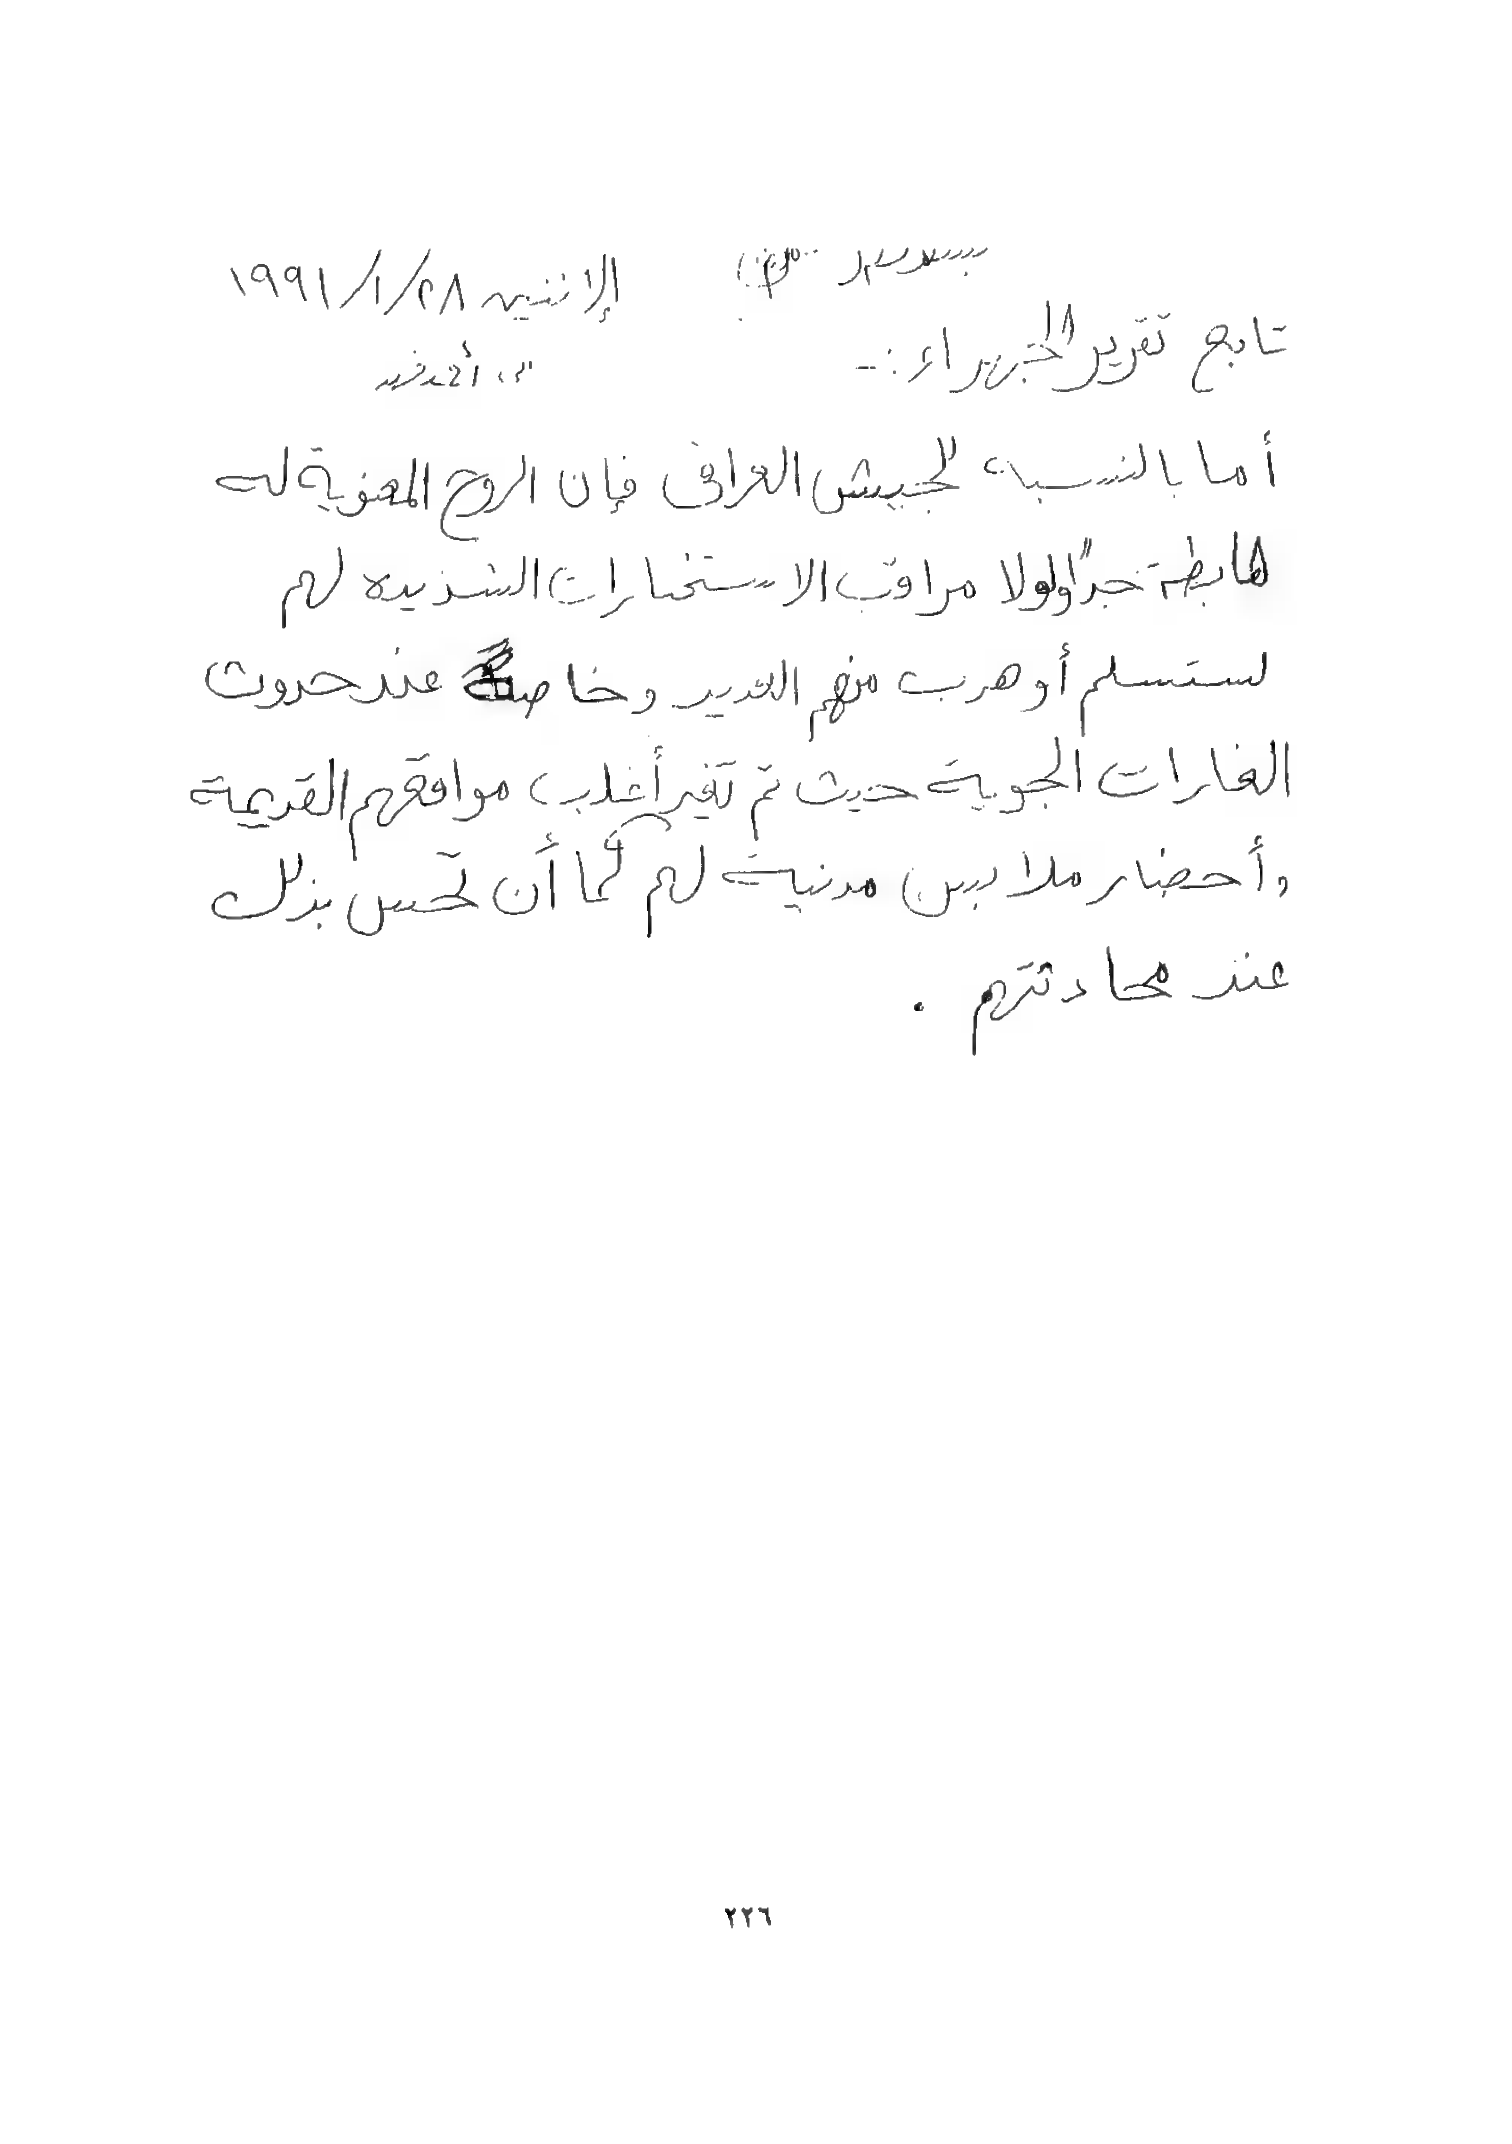 الإثنين ٢٨/١/١٩٩١
تابع تقرير الجهراء :-
أحمد فريد
أما بالنسبة للجيش العراقى فإن الروح المعنوية له
هابطة جداً ولولا مراقبة الاستخبارات الشديده لهم
لستسلم أو هرب منهم العديد وخاصة عند حدوث
الغارات الجوية حيث تم تغير أغلب مواقعهم القديمة
وأحضار ملابس مدنية لهم كما أن تحس بذلك
عند محادثتهم .
٢٢٦